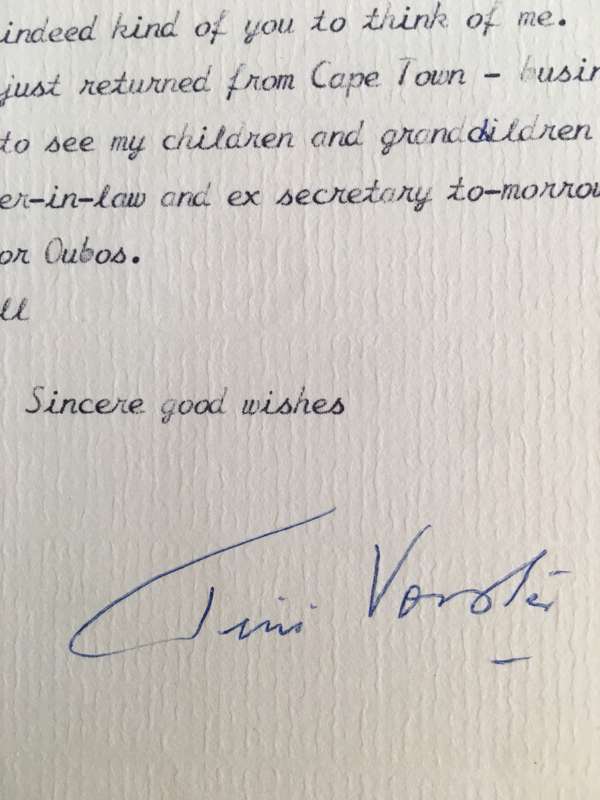 indeed kind of you to think of me.
just returned from Cape Town - busin
to see my children and grandchildren
er-in-law and ex secretary to-morrow
or Oubos.
ll
Sincere good wishes
Tini Vorster